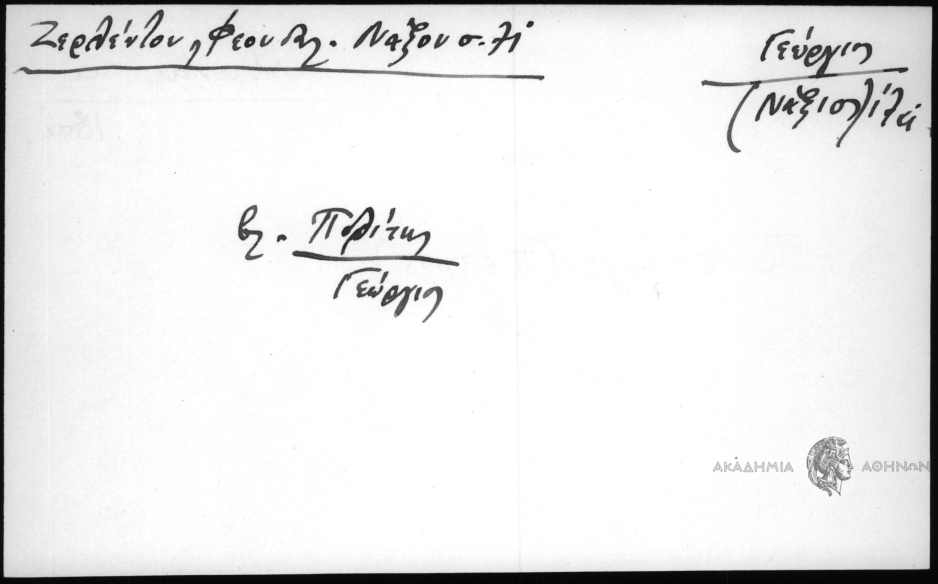 Ζερλέντου, Φεουδ. Νάξου σ. 71
Γεώργιος
(Νάξιος)
βλ. Πολίτης
Γεώργιος
ΑΚΑΔΗΜΙΑ ΑΘΗΝΩΝ